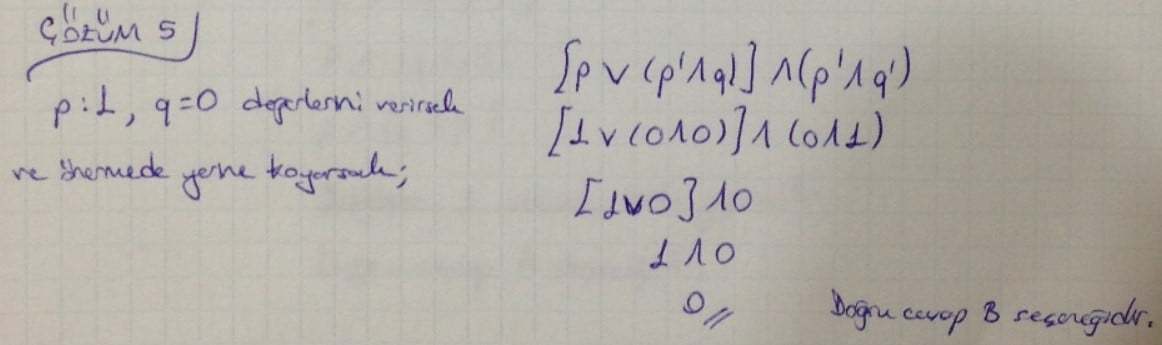 ÇÖZÜM 5
p:1, q=0 değerlerini verirsek
ve önermede yerine koyarsak;
[p ∨ (p'∧q)] ∧ (p'∧q')
[1 ∨ (0∧0)] ∧ (0∧1)
[1∨0] ∧ 0
1 ∧ 0
0 //
Doğru cevap B seçeneğidir.